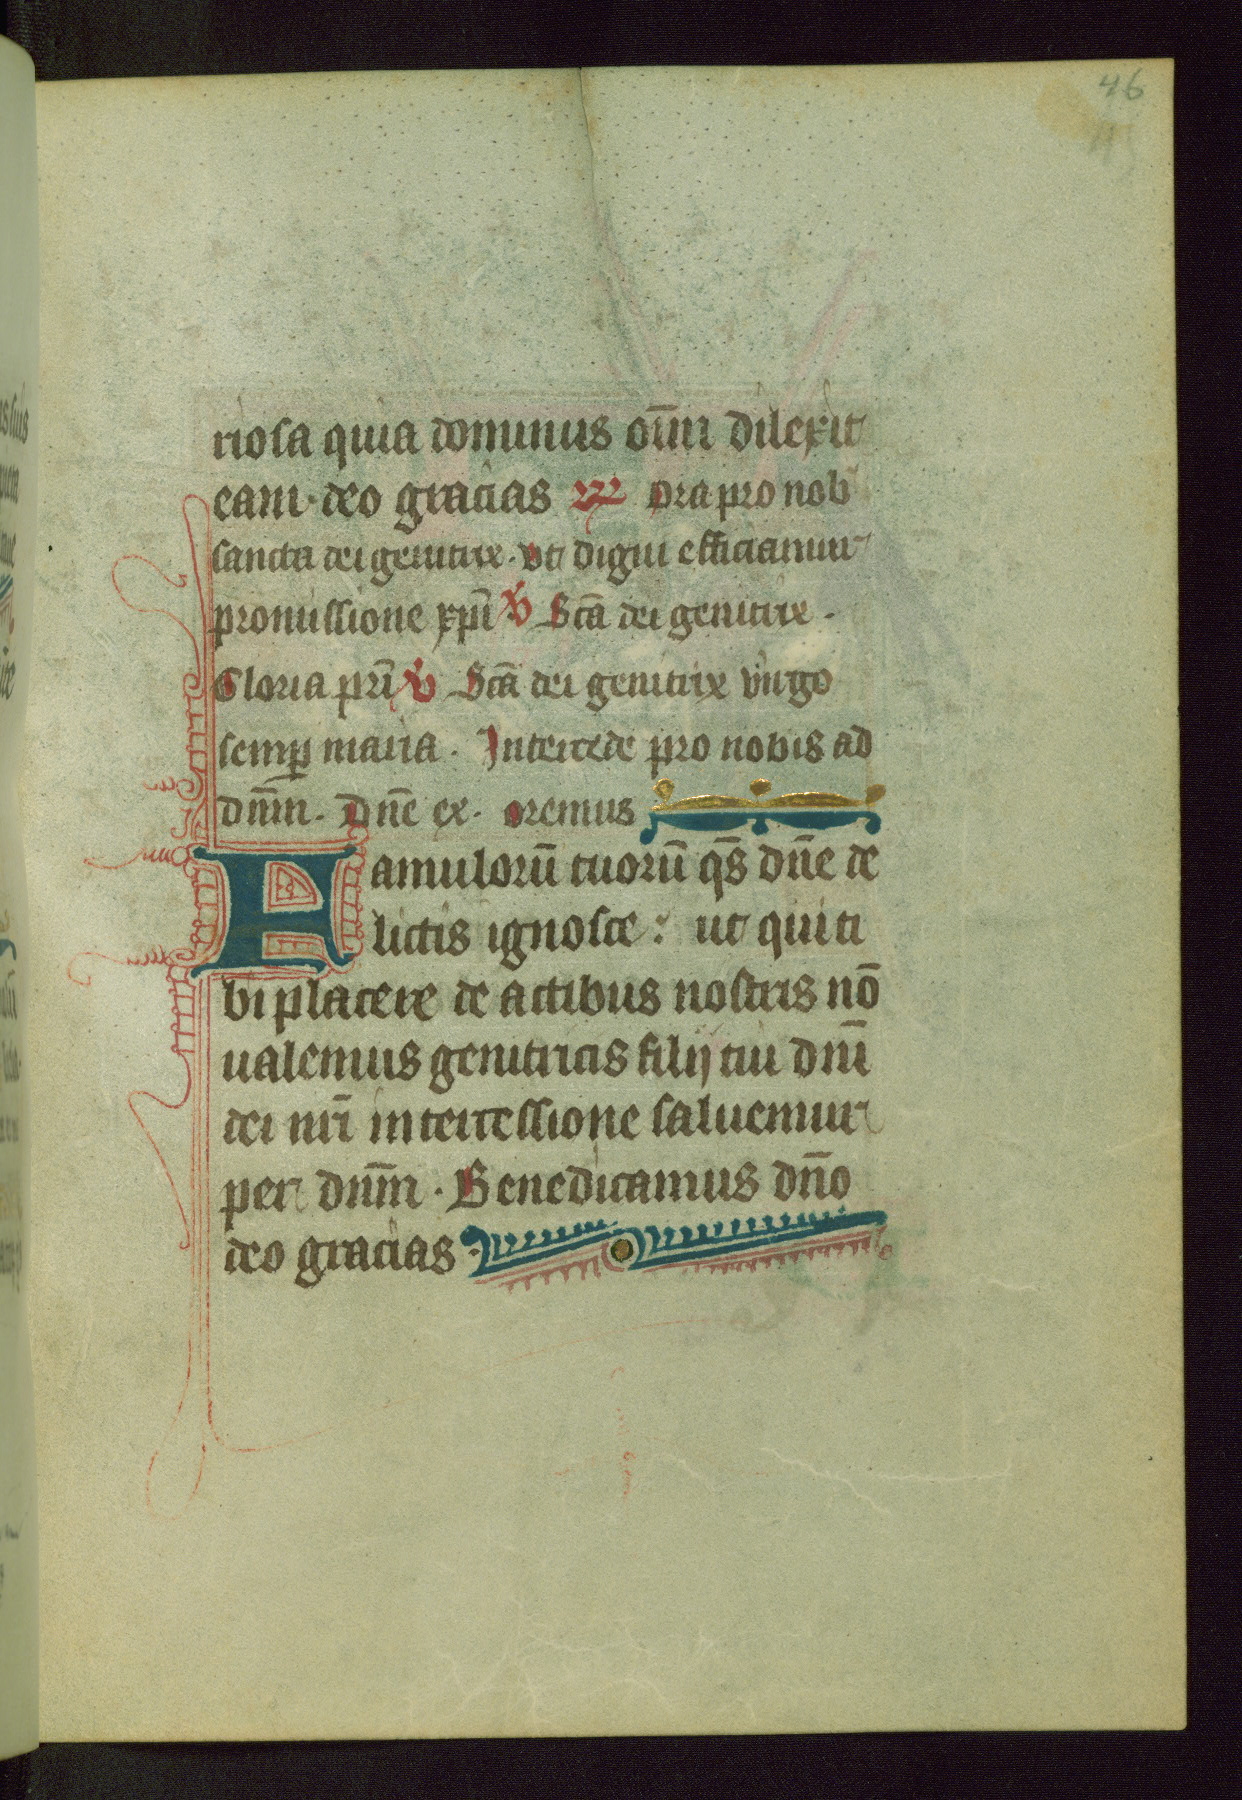 46
45
riosa quia dominus om̅i dilexit
eam· deo gracias Ora pro nob
sancta dei genitrix· vt digni efficiamur
promissione xp̅i ℣ Sc̅a dei genitrix·
Gloria pr̅i ℣ Sc̅a dei genitrix virgo
semꝑ maria· Intercede pro nobis ad
dn̅m· Dn̅e ex· oremus
Famuloru̅ tuoru̅ qs̅ dn̅e de
lictis ignosce: ut qui ti
bi placere de actibus nostris no̅
ualemus genitricis filij tui dn̅i
dei nr̅i intercessione saluemur
per dn̅m· Benedicamus dn̅o
deo gracias·